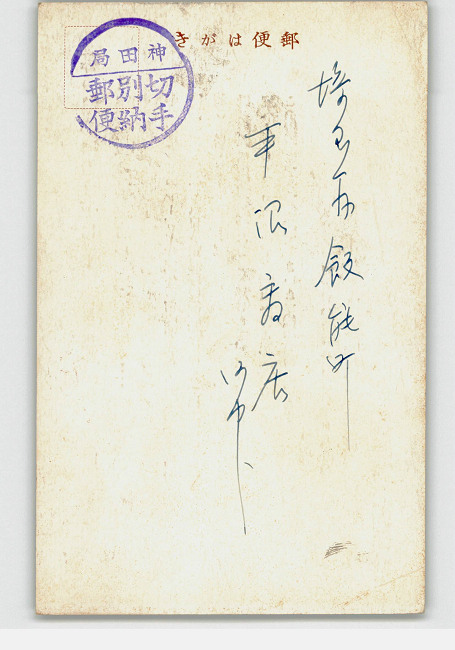 郵便はがき
神田局
切手
別納
郵便
埼玉県飯能町
平沼商店
御中